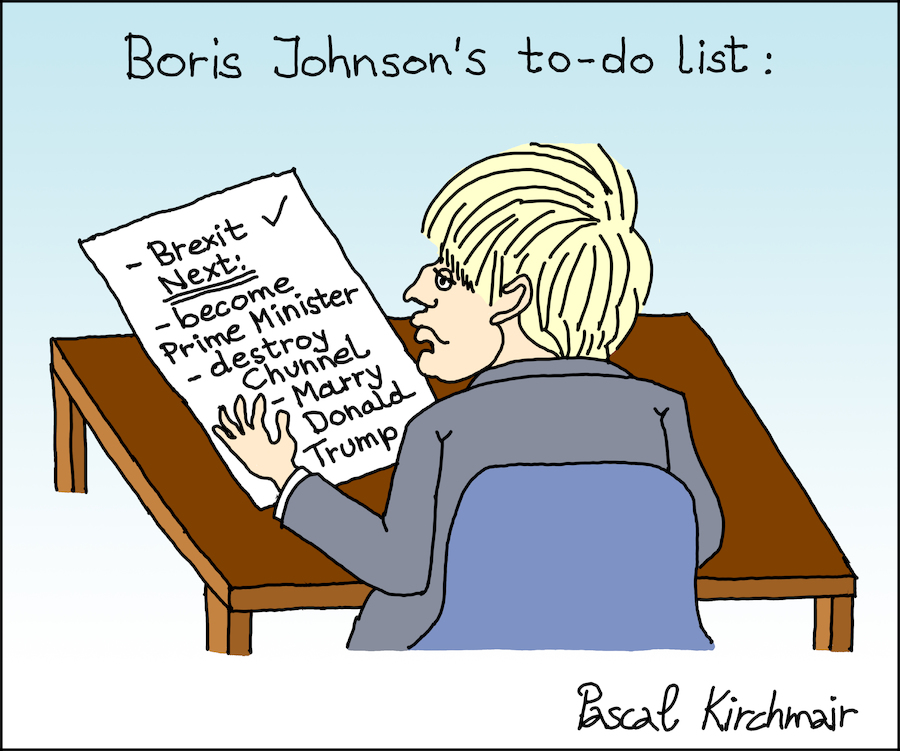 Boris Johnson's to-do list:
- Brexit ✓
Next:
- become
Prime Minister
- destroy
Chunnel
- Marry
Donald
Trump
Pascal Kirchmair